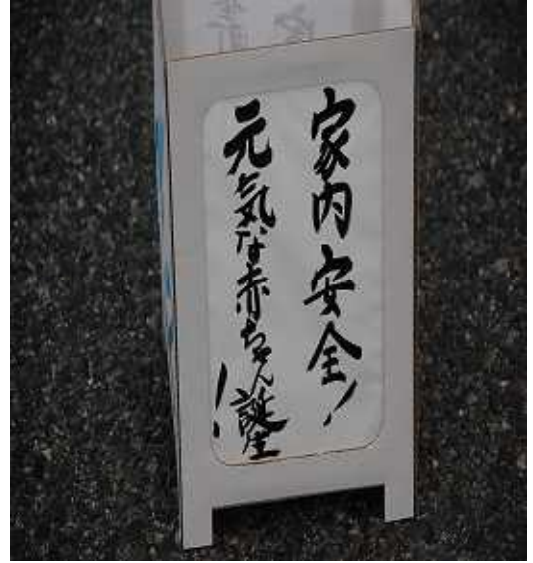 家内安全!
元気な赤ちゃん誕生!